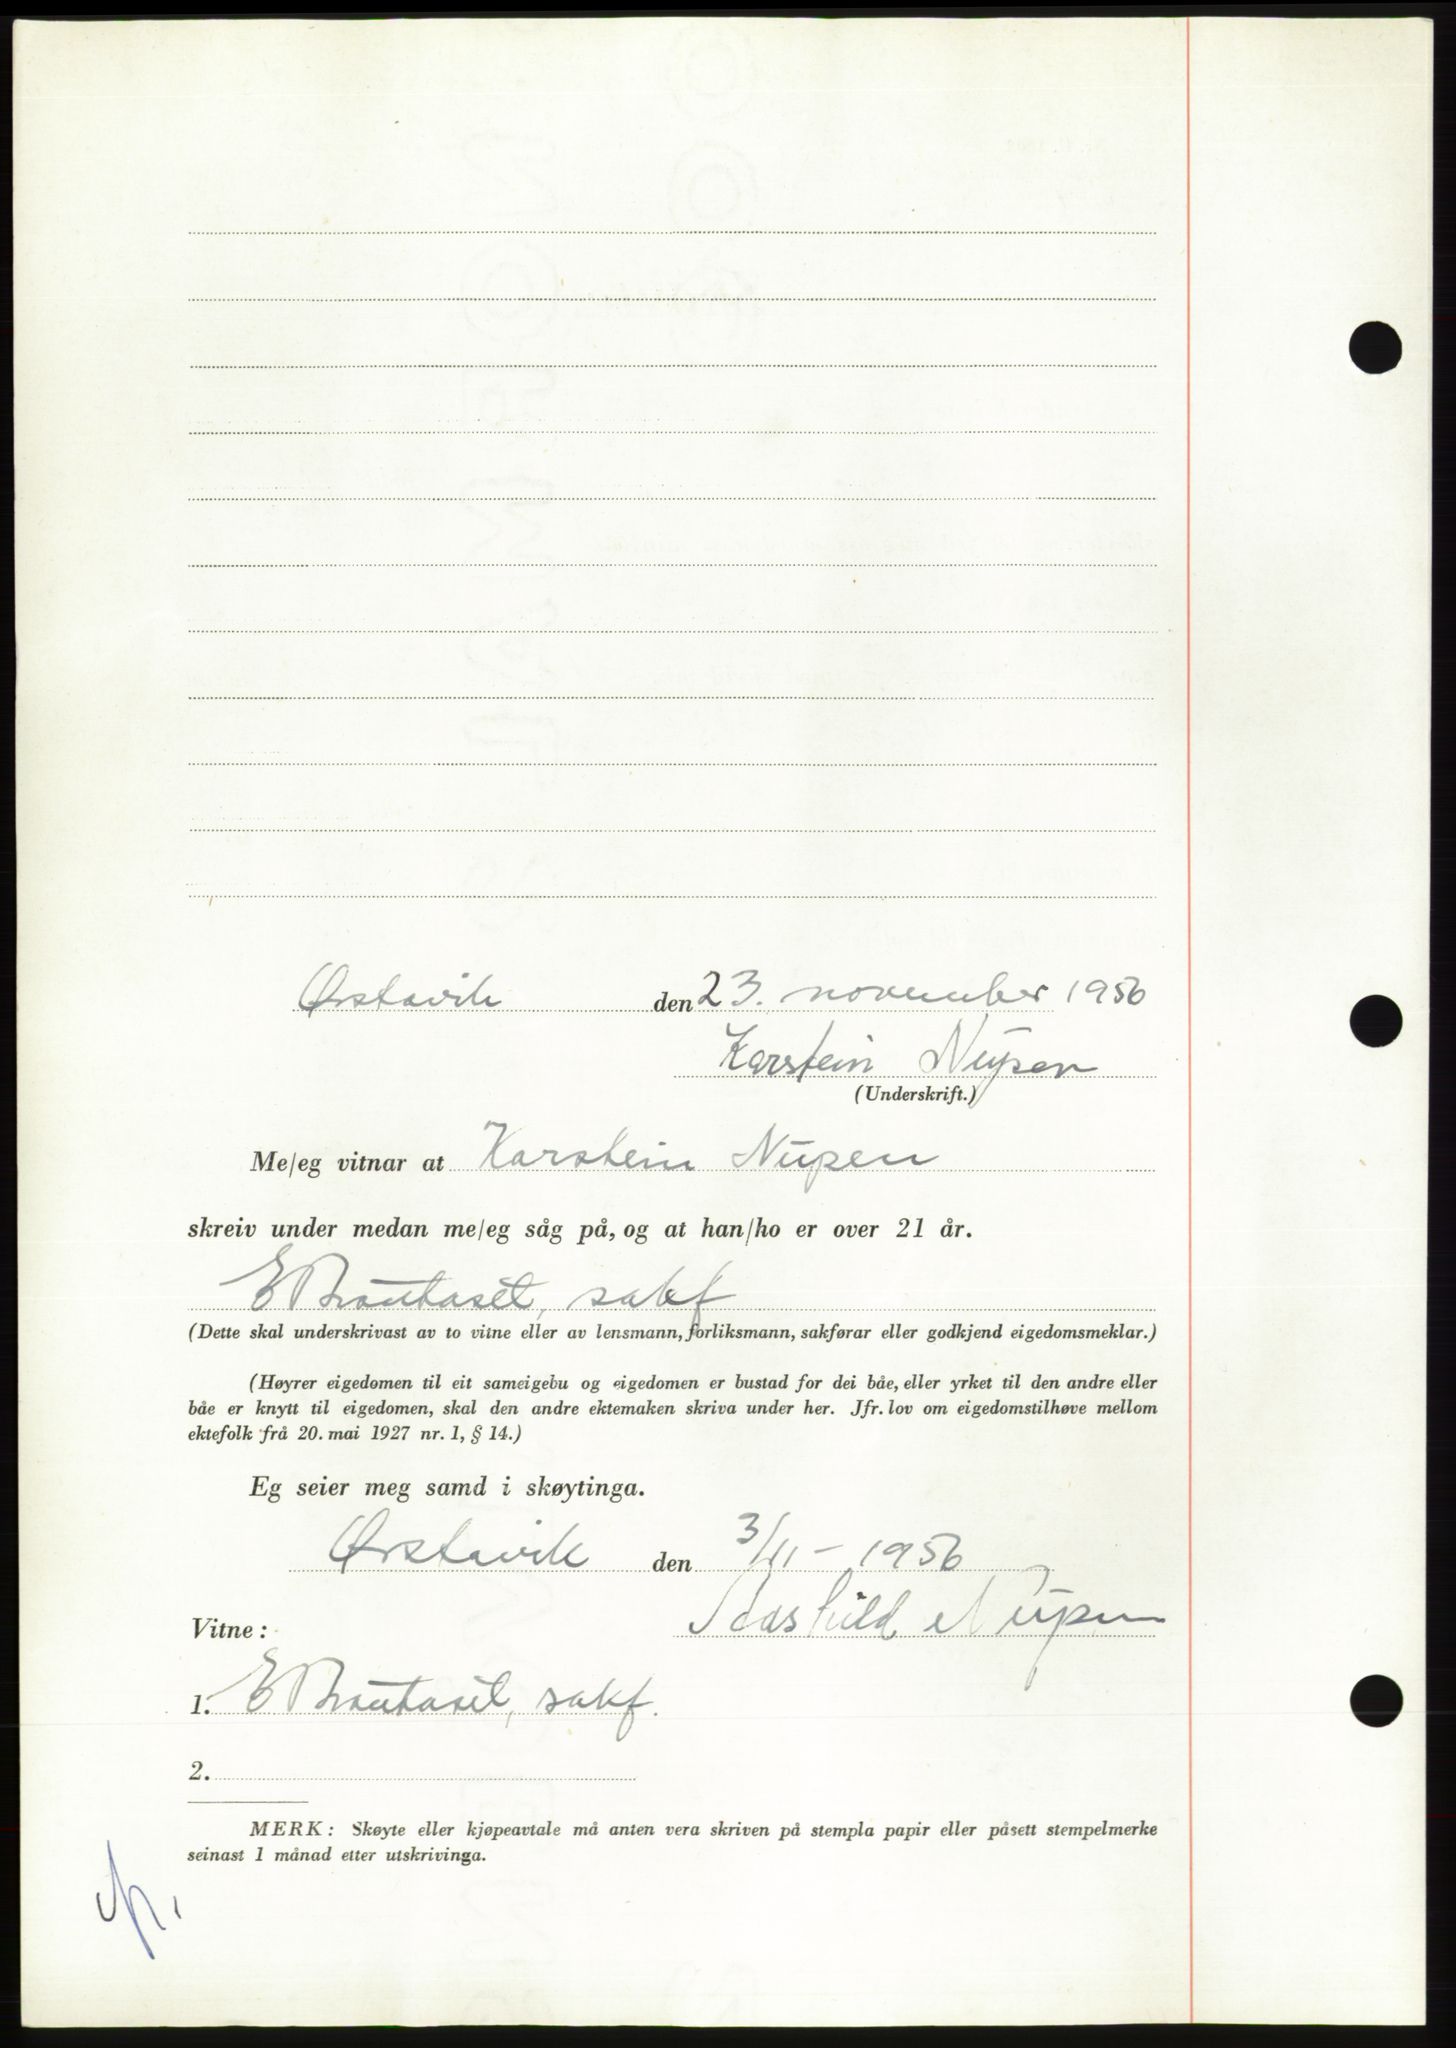 Ørstavik den 23. november 1956
Karstein Nupen
(Underskrift.)
Me/eg vitnar at Karstein Nupen
skreiv under medan me/eg såg på, og at han/ho er over 21 år.
E sakf
(Dette skal underskrivast av to vitne eller av lensmann, forliksmann, sakførar eller godkjend eigedomsmeklar.)
(Høyrer eigedomen til eit sameigebu og eigedomen er bustad for dei båe, eller yrket til den andre eller
båe er knytt til eigedomen, skal den andre ektemaken skriva under her. Jfr. lov om eigedomstilhøve mellom
ektefolk frå 20. mai 1927 nr. 1, § 14.)
Eg seier meg samd i skøytinga.
Ørstavik den 3/11 - 1956
Vitne: Nupen
1. E sakf.
2.
MERK: Skøyte eller kjøpeavtale må anten vera skriven på stempla papir eller påsett stempelmerke
seinast 1 månad etter utskrivinga.